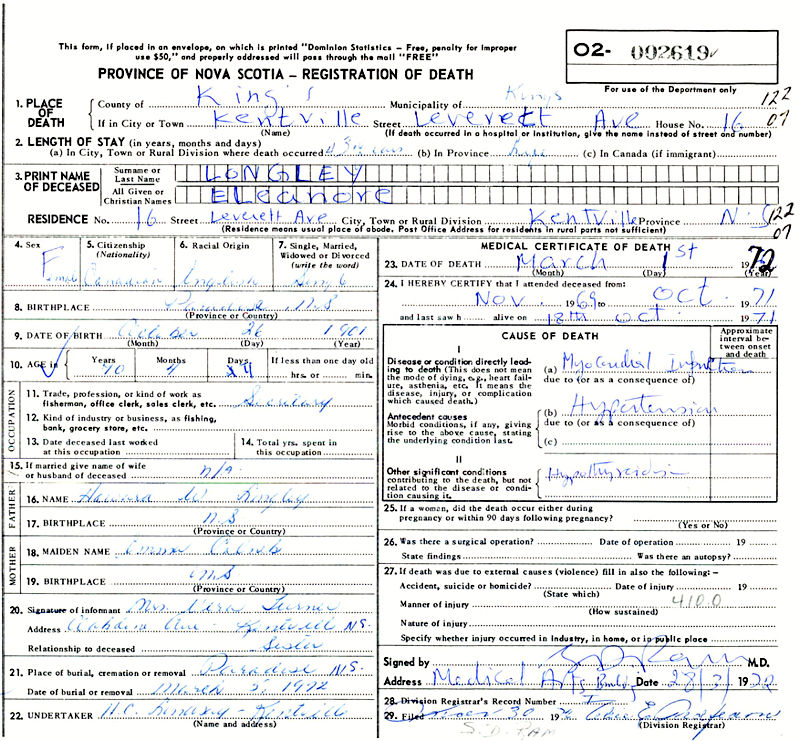 This form, if placed in an envelope, on which is printed "Dominion Statistics – Free, penalty for improper
use $50," and properly addressed will pass through the mail "FREE"
O2- 002619
PROVINCE OF NOVA SCOTIA – REGISTRATION OF DEATH
For use of the Department only
122
07
1. PLACE OF DEATH
County of King's Municipality of Kings
If in City or Town Kentville Street Leverett Ave House No. 16
(Name) (If death occurred in a hospital or institution, give the name instead of street and number)
2. LENGTH OF STAY (in years, months and days)
(a) In City, Town or Rural Division where death occurred 43 years (b) In Province (c) In Canada (if immigrant)
3. PRINT NAME OF DECEASED
Surname or Last Name LONGLEY
All Given or Christian Names ELeanore
RESIDENCE No. 16 Street Leverett Ave City, Town or Rural Division Kentville Province N.S
(Residence means usual place of abode. Post Office Address for residents in rural parts not sufficient)
122
07
4. Sex
F
5. Citizenship
(Nationality)
Canadian
6. Racial Origin
English
7. Single, Married, Widowed or Divorced
(write the word)
Single
8. BIRTHPLACE Paradise N.S
(Province or Country)
9. DATE OF BIRTH October 26 1901
(Month) (Day) (Year)
10. AGE in
Years Months Days If less than one day old
70 4 hrs. or min.
OCCUPATION
11. Trade, profession, or kind of work as fishermen, office clerk, sales clerk, etc. Secretary
12. Kind of industry or business, as fishing, bank, grocery store, etc.
13. Date deceased last worked at this occupation
14. Total yrs. spent in this occupation
15. If married give name of wife or husband of deceased n/a
FATHER
16. NAME Howard W
17. BIRTHPLACE N.S
(Province or Country)
MOTHER
18. MAIDEN NAME Emma
19. BIRTHPLACE N.S
(Province or Country)
20. Signature of informant Mrs. Vera Turner
Address Ave - Kentville N.S.
Relationship to deceased Sister
21. Place of burial, cremation or removal Paradise N.S.
Date of burial or removal March 5, 1972
22. UNDERTAKER H.C. Lindsay - Kentville
(Name and address)
MEDICAL CERTIFICATE OF DEATH
23. DATE OF DEATH March 1st 1972
(Month) (Day) (Year)
24. I HEREBY CERTIFY that I attended deceased from:
Nov. 1969 to Oct. 1971
and last saw h alive on 18th Oct. 1971
CAUSE OF DEATH
Approximate interval between onset and death
I
Disease or condition directly leading to death (This does not mean the mode of dying, e.g., heart failure, asthenia, etc. It means the disease, injury, or complication which caused death.)
(a) Myocardial Infarction
due to (or as a consequence of)
Antecedent causes
Morbid conditions, if any, giving rise to the above cause, stating the underlying condition last.
(b) Hypertension
due to (or as a consequence of)
(c)
II
Other significant conditions
contributing to the death, but not related to the disease or condition causing it.
Hypothyroidism
25. If a woman, did the death occur either during pregnancy or within 90 days following pregnancy?
(Yes or No)
26. Was there a surgical operation? Date of operation 19
State findings Was there an autopsy?
27. If death was due to external causes (violence) fill in also the following:-
Accident, suicide or homicide? Date of injury 19
(State which)
Manner of injury 410.0
(How sustained)
Nature of injury
Specify whether injury occurred in industry, in home, or in public place
Signed by M.D.
Address Medical Arts Bldg Date 28/3/ 1972
28. Division Registrar's Record Number
29. Filed 30 19
(Division Registrar)